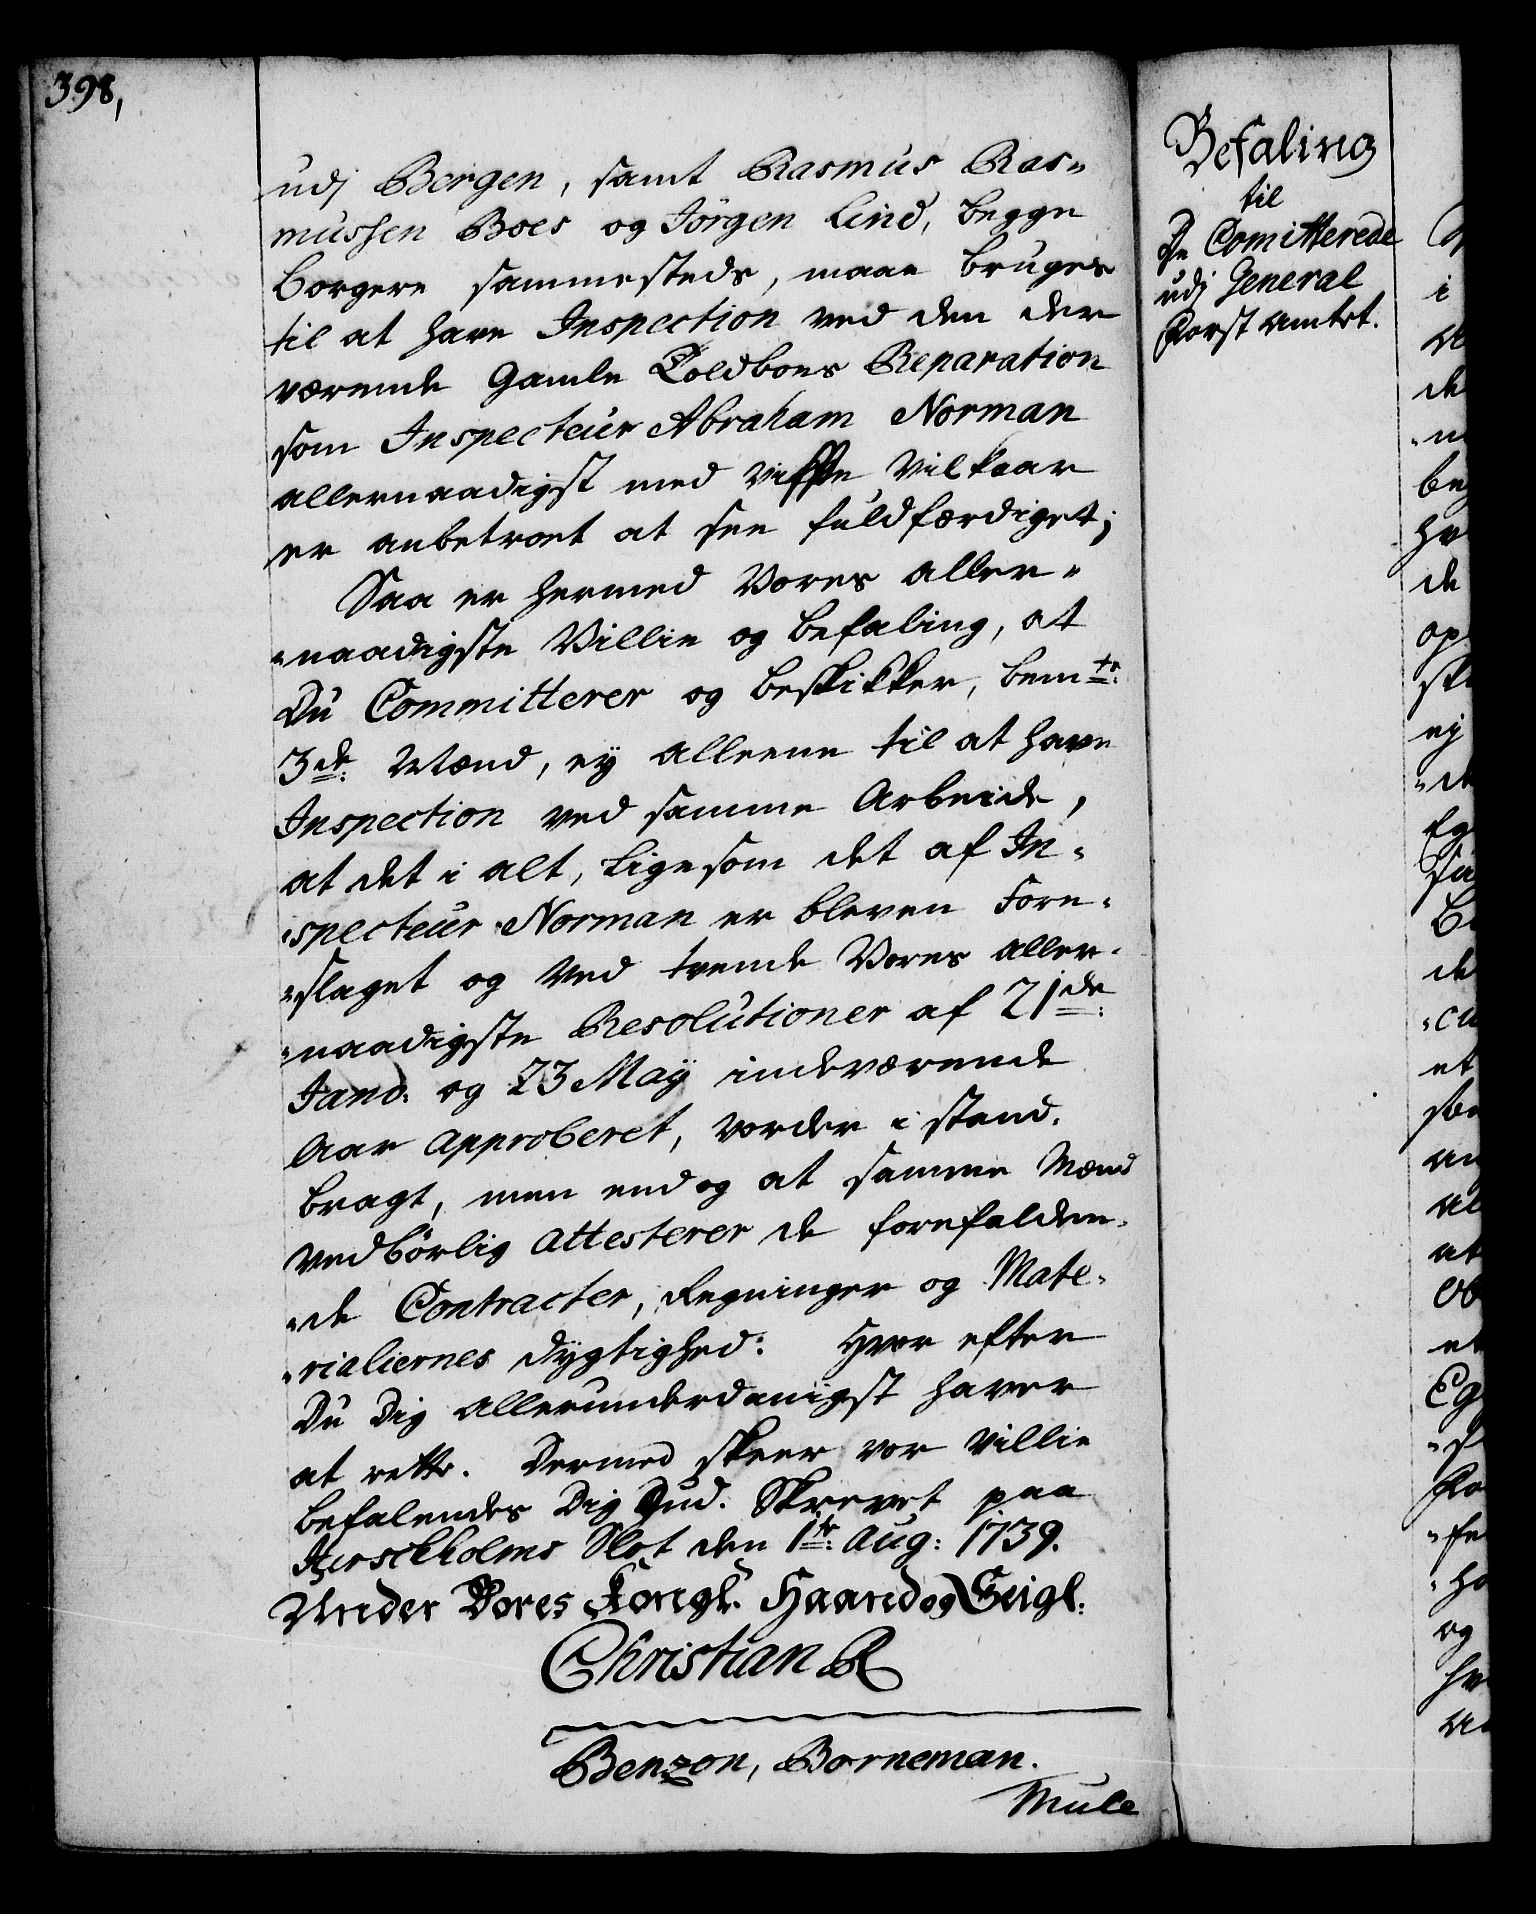 398,
udj Bergen, samt Rasmus Ras-
mussen Boes og Jørgen Lind, begge
borgere sammesteds, maae bruges
til at have Inspection ved den der
værende gamle Toldboes Reparation
som Inspecteur Abraham Norman
allernaadigst med visse Vilkaar
er anbetroet at see fuldfærdiget;
Saa er hermed Vores aller-
naadigste Villie og befaling, at
Du Committerer og beskikker, bemte:
3de: Mænd, ey alleene til at have
Inspection ved samme Arbeide,
at det i alt, ligesom det af In-
specteur Norman er bleven Fore-
slaget og Ved tvende Vores aller-
naadigste Resolutioner af 21de:
Janv: og 23 Maÿ indeværende
Aar approberet, vorder i stand-
bragt, men end og at samme Mænd
vedbørlig attesterer de forefalden-
de Contracter, Regninger og Mate-
rialiernes dygtighed: Hvor efter
Du Dig allerunderdanigst haver
at rette. Dermed skeer vor Villie
befalendes Dig Gud. Skrevet paa
Hirschholms Slot den 1te: Aug: 1739.
Under Vores Kongl: Haand og Seigl:
Christian R
Benzon, Borneman.
Mule
Befaling
til
De Comitterede
udj General
Forst Amtet.